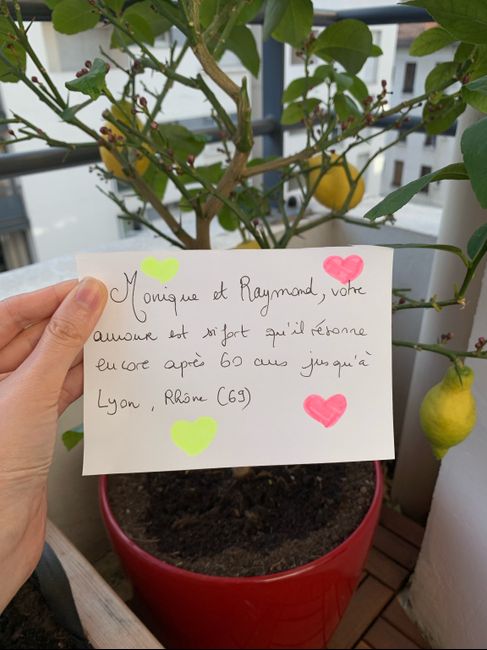 Monique et Raymond, votre
amour est si fort qu'il résonne
encore après 60 ans jusqu'à
Lyon, Rhône (69)